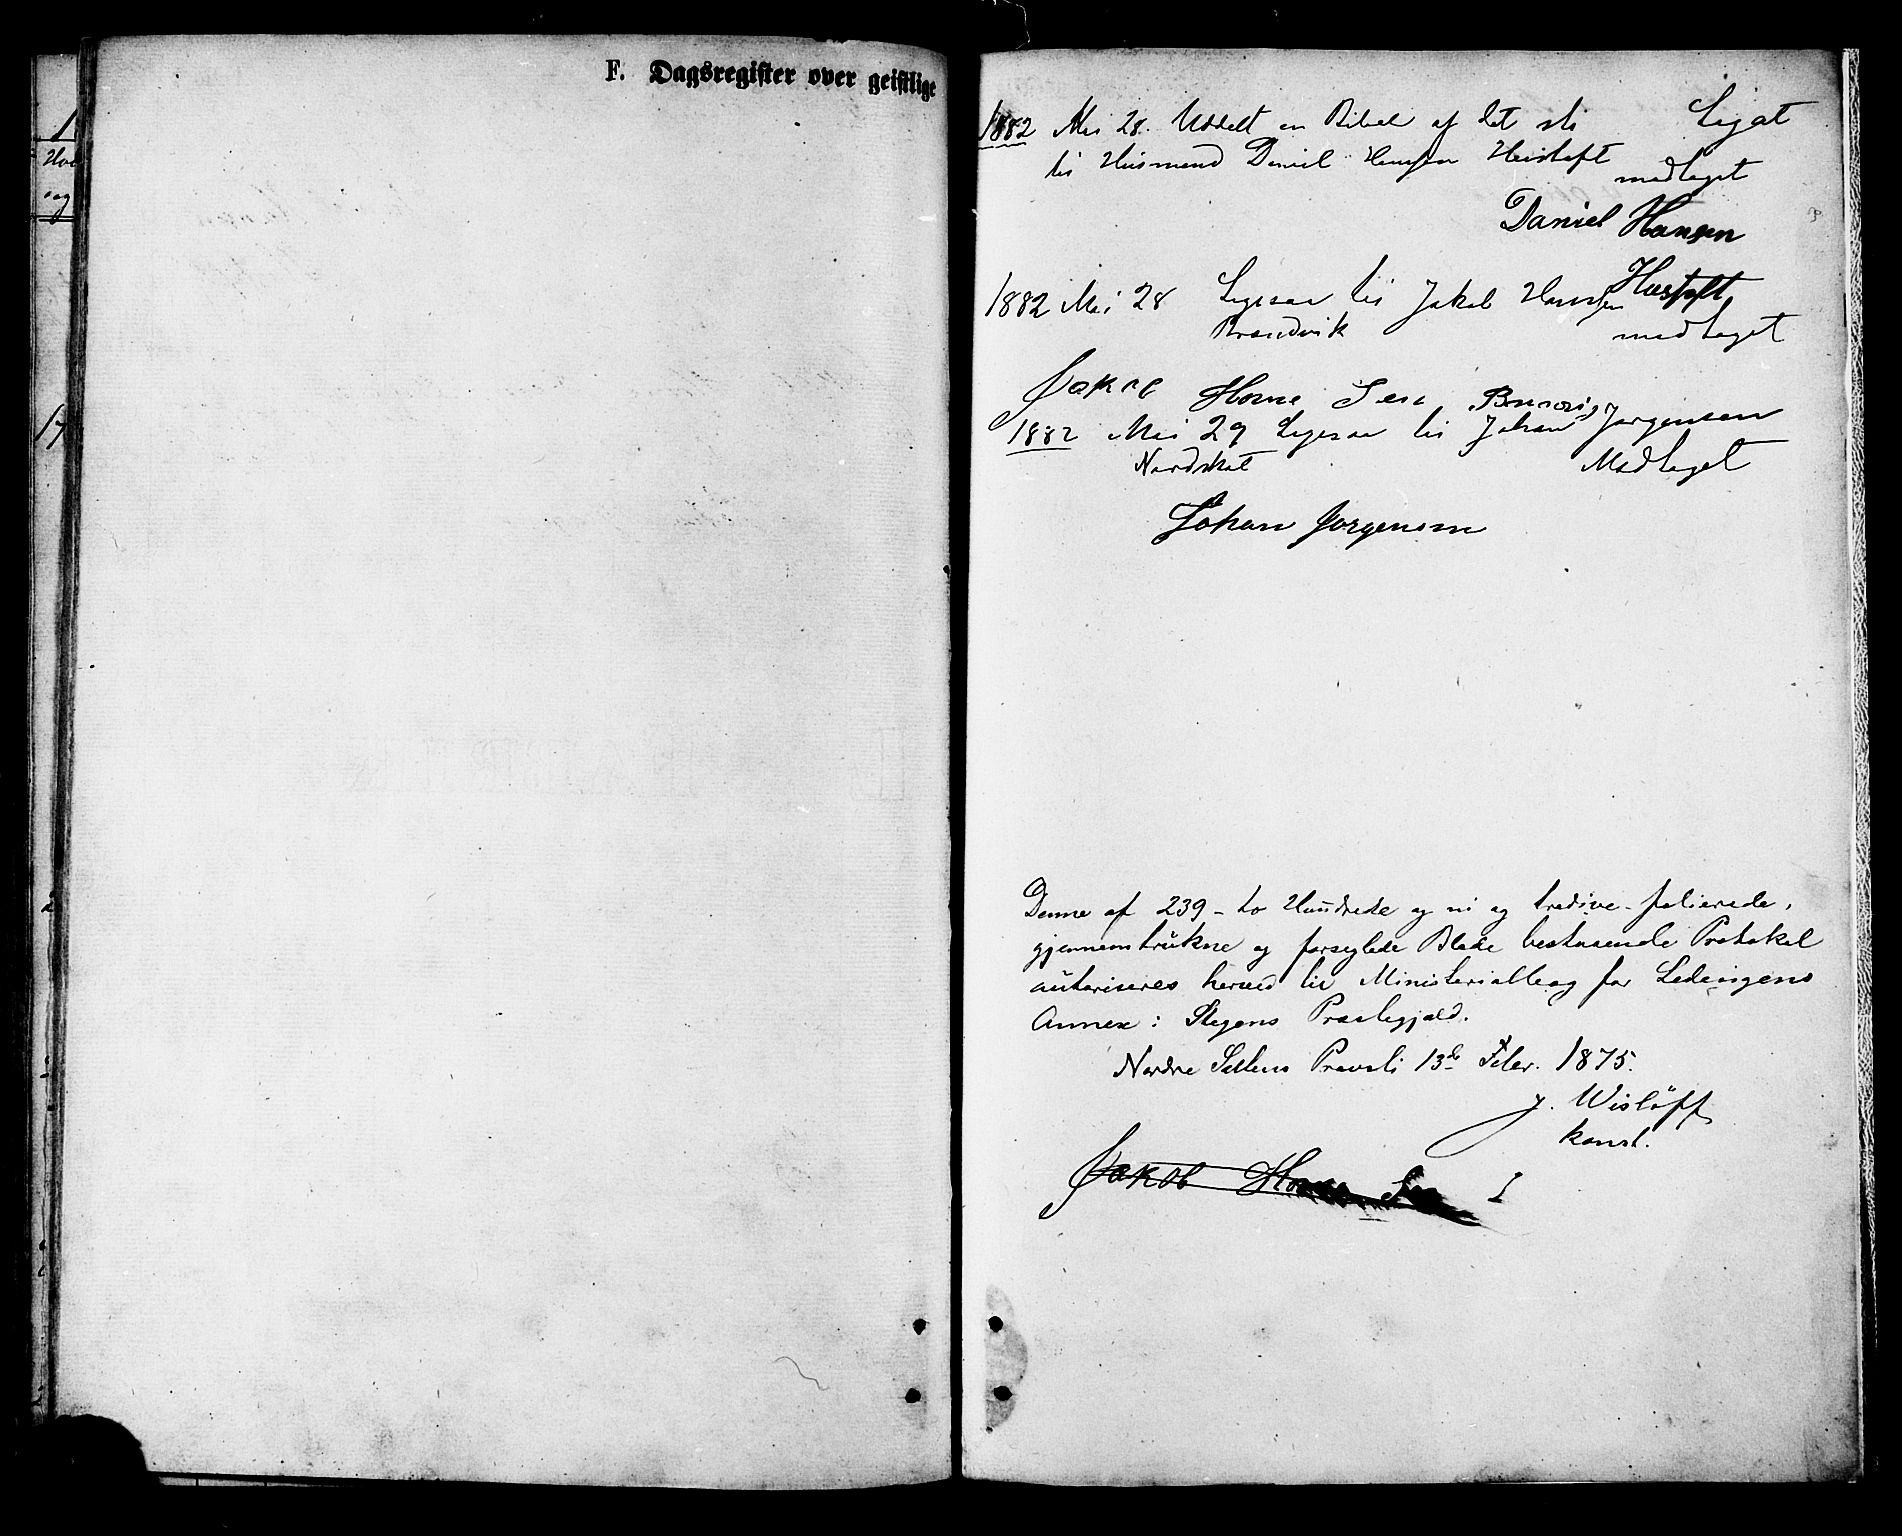 F. Dagsregister over geistlige
1882 Mai 28. Uddelt en Bibel af det Legat
til Husmand Daniel Hansen
modtaget
Daniel Hansen
1882 Mai 28 Ligesaa til Jakob Hansen
Brændvik modtaget
Jakob
1882 Mai 29 Ligesaa til Johan Jørgensen
Nordskot Modtaget
Johan Jorgensen
Denne af 239 – to Hundrede og ni og tredive – folierede,
gjennemtrukne og forseglede Blade bestaaende Protokol
autoriseres herved til Ministerialbog for Ledingens
Annex i Stegens Præstegjæld.
Nordre Saltens Provsti 13de Febr. 1875.
J. Wisløff
konst.
Jakob